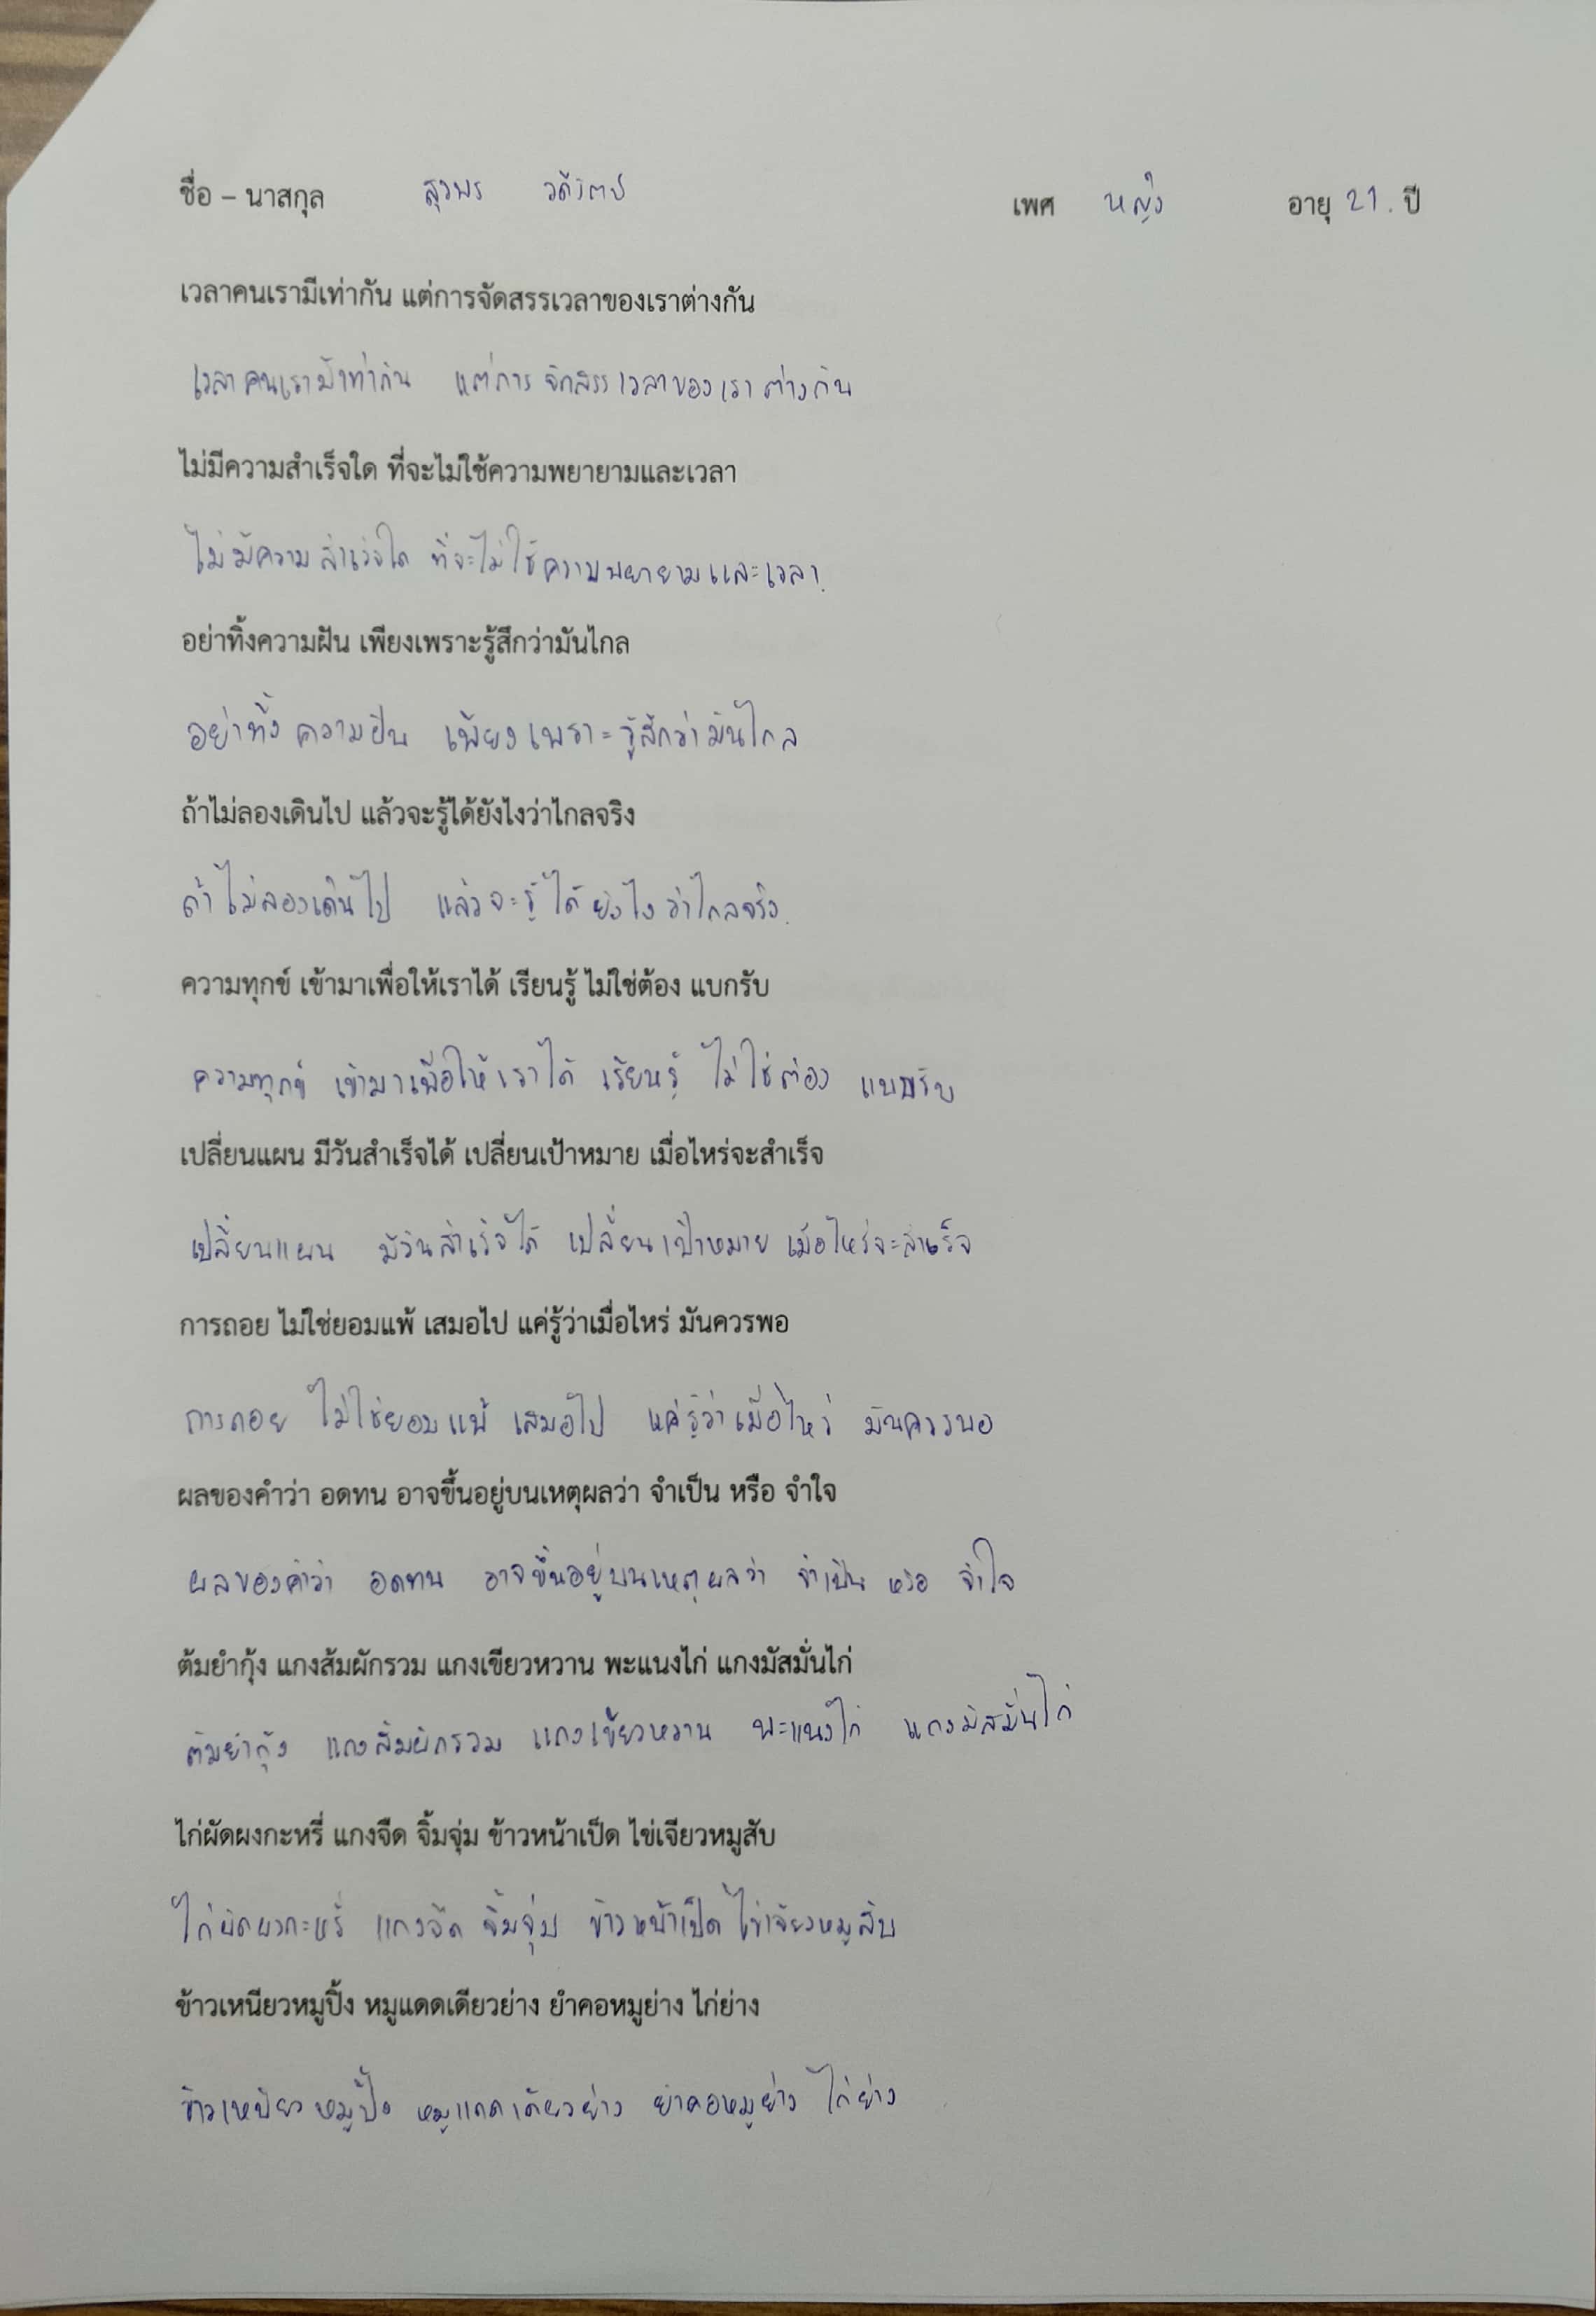 ชื่อ – นาสกุล สุวพร เพศ หญิง อายุ 21. ปี
เวลาคนเรามีเท่ากัน แต่การจัดสรรเวลาของเราต่างกัน
เวลาคนเรามีเท่ากัน แต่การจัดสรรเวลาของเราต่างกัน
ไม่มีความสำเร็จใด ที่จะไม่ใช้ความพยายามและเวลา
ไม่มีความสำเร็จใด ที่จะไม่ใช้ความพยายามและเวลา.
อย่าทิ้งความฝัน เพียงเพราะรู้สึกว่ามันไกล
อย่าทิ้งความฝัน เพียงเพราะรู้สึกว่ามันไกล
ถ้าไม่ลองเดินไป แล้วจะรู้ได้ยังไงว่าไกลจริง
ถ้าไม่ลองเดินไป แล้วจะรู้ได้ยังไงว่าไกลจริง.
ความทุกข์ เข้ามาเพื่อให้เราได้ เรียนรู้ ไม่ใช่ต้อง แบกรับ
ความทุกข์ เข้ามาเพื่อให้เราได้ เรียนรู้ ไม่ใช่ต้อง แบกรับ
เปลี่ยนแผน มีวันสำเร็จได้ เปลี่ยนเป้าหมาย เมื่อไหร่จะสำเร็จ
เปลี่ยนแผน มีวันสำเร็จได้ เปลี่ยนเป้าหมาย เมื่อไหร่จะสำเร็จ
การถอย ไม่ใช่ยอมแพ้ เสมอไป แค่รู้ว่าเมื่อไหร่ มันควรพอ
การถอย ไม่ใช่ยอมแพ้ เสมอไป แค่รู้ว่าเมื่อไหร่ มันควรพอ
ผลของคำว่า อดทน อาจขึ้นอยู่บนเหตุผลว่า จำเป็น หรือ จำใจ
ผลของคำว่า อดทน อาจขึ้นอยู่บนเหตุผลว่า จำเป็น หรือ จำใจ
ต้มยำกุ้ง แกงส้มผักรวม แกงเขียวหวาน พะแนงไก่ แกงมัสมั่นไก่
ต้มยำกุ้ง แกงส้มผักรวม แกงเขียวหวาน พะแนงไก่ แกงมัสมั่นไก่
ไก่ผัดผงกะหรี่ แกงจืด จิ้มจุ่ม ข้าวหน้าเป็ด ไข่เจียวหมูสับ
ไก่ผัดผงกะหรี่ แกงจืด จิ้มจุ่ม ข้าวหน้าเป็ด ไข่เจียวหมูสับ
ข้าวเหนียวหมูปิ้ง หมูแดดเดียวย่าง ยำคอหมูย่าง ไก่ย่าง
ข้าวเหนียวหมูปิ้ง หมูแดดเดียวย่าง ยำคอหมูย่าง ไก่ย่าง